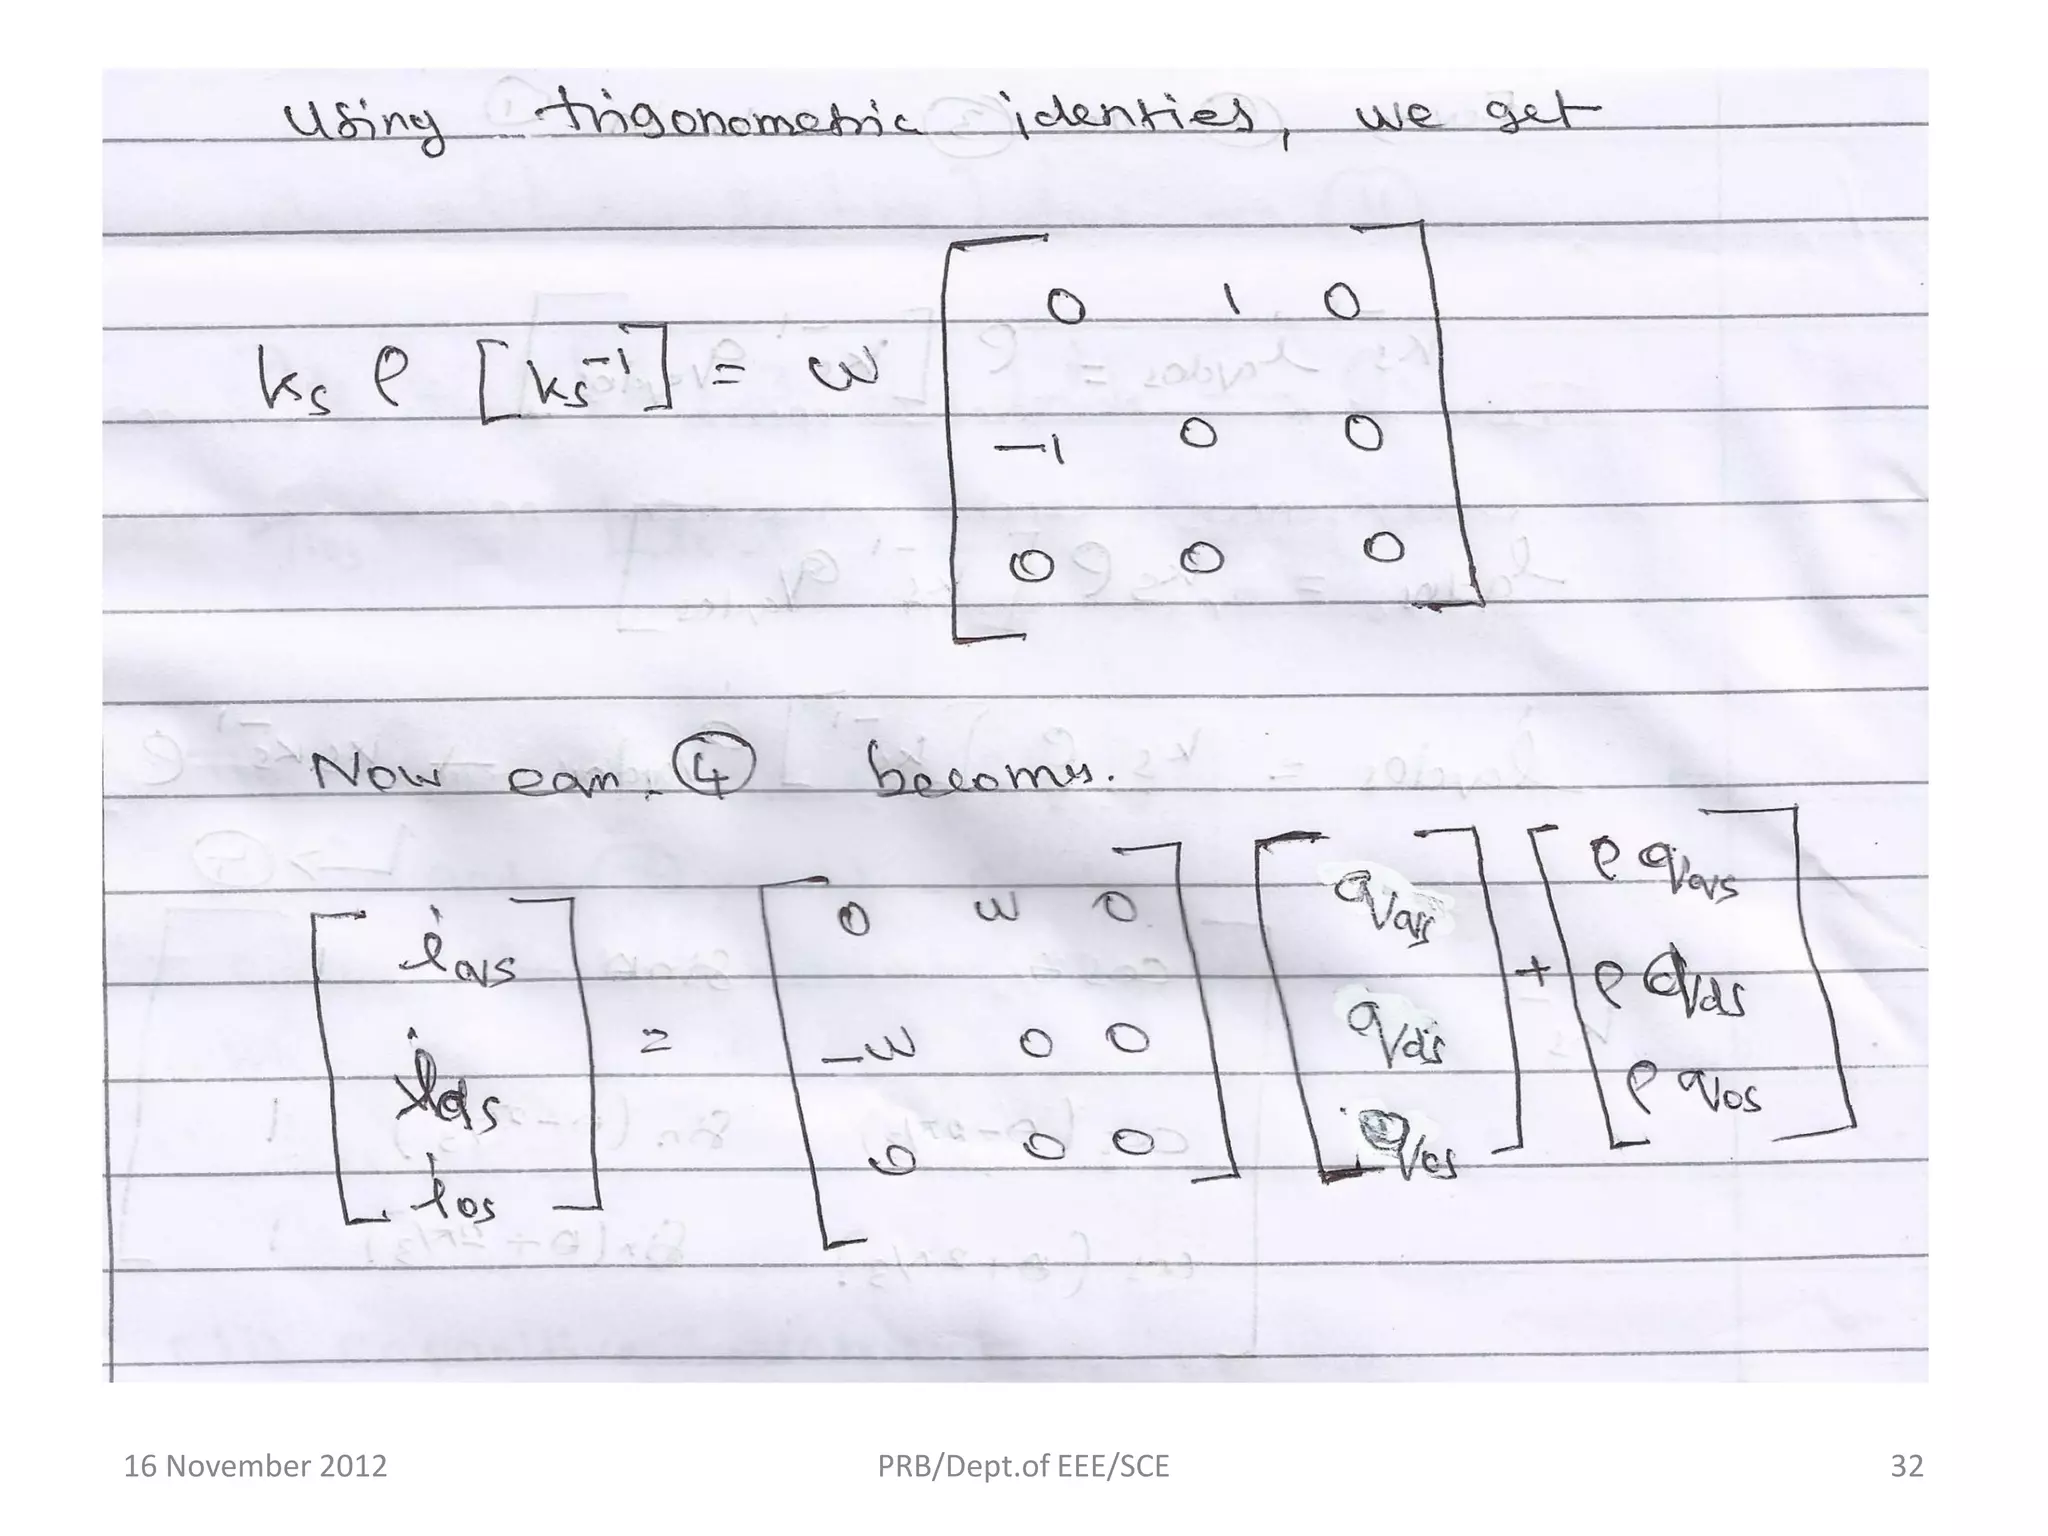 Using trigonometric identies, we get
ks ρ [ks⁻¹] = ω [0 1 0
-1 0 0
0 0 0]
Now eqn. ④ becomes.
[iqs
ids
ios] = [0 ω 0
-ω 0 0
0 0 0] [qqs
qds
qos] + [ρ qqs
ρ qds
ρ qos]
16 November 2012 PRB/Dept.of EEE/SCE 32